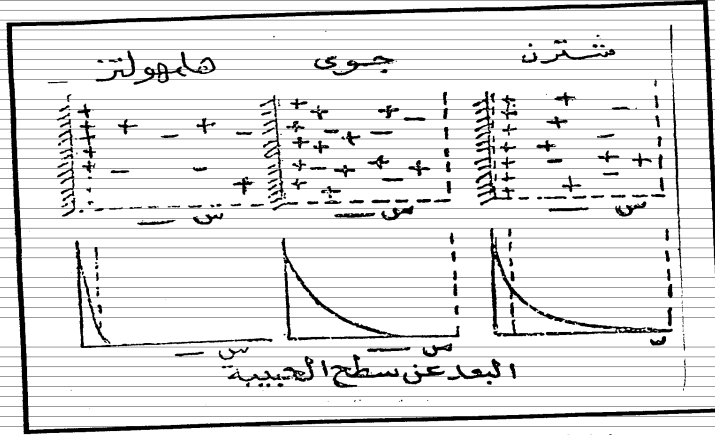 شترن جوى هامهولتز
س س س
س س س
البعد عن سطح الحبيبة